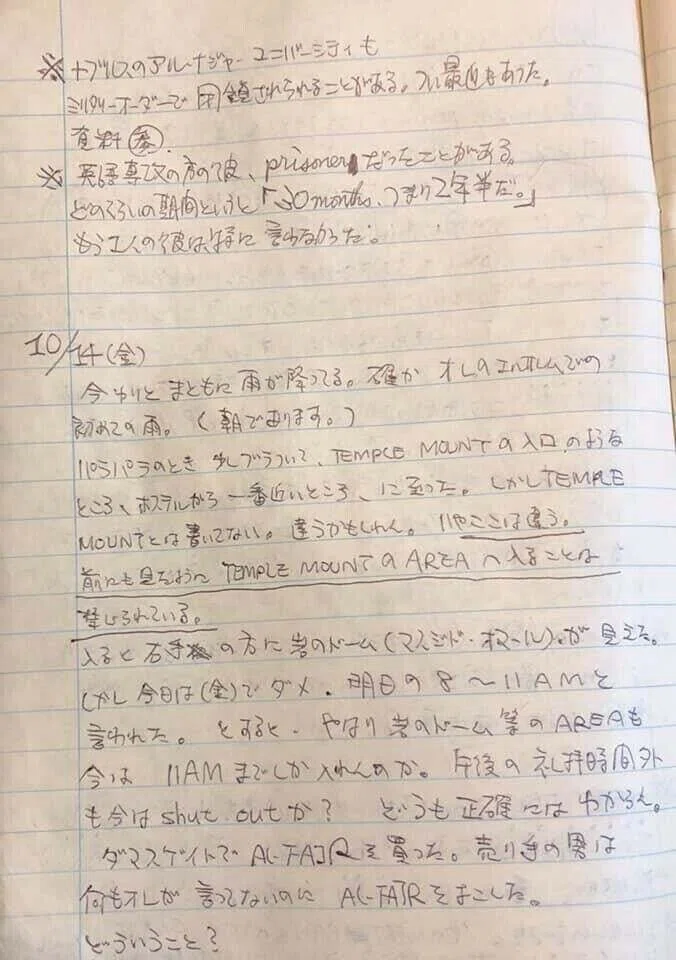 ※ ナブルスのアルーナジャーユニバーシティも
ミリタリーオーダーで閉鎖されられることがある。つい最近もあった。
資料参.
※ 英語専攻の方の彼、prisonerだったことがある。
どのくらいの期間というと「30 months、つまり2年半だ。」
もう1人の彼は、特に言わなかった。
10/14(金)
今わりとまともに雨が降ってる。確か オレのエルサレムでの
初めての雨。(朝であります。)
パラパラのとき 少しブラついて、TEMPLE MOUNTの入口のような
ところ、ホステルから一番近いところ、に至った。しかしTEMPLE
MOUNTとは書いてない。違うかもしれん。いやここは違う。
前にも見たように TEMPLE MOUNTのAREAへ入ることは
禁じられている。
入ると右手の方に岩のドーム(マスジド・オマール)が見えた。
しかし今日は(金)でダメ、明日の8〜11AMと
言われた。とすると、やはり岩のドーム等のAREAも
今は 11AMまでしか入れんのか。午後の礼拝時間外
も今はshut outか? どうも正確にはわからん。
ダマスゲイトでAL-FAJRを買った。売り手の男は
何もオレが言ってないのに AL-FAJRをよこした。
どういうこと?